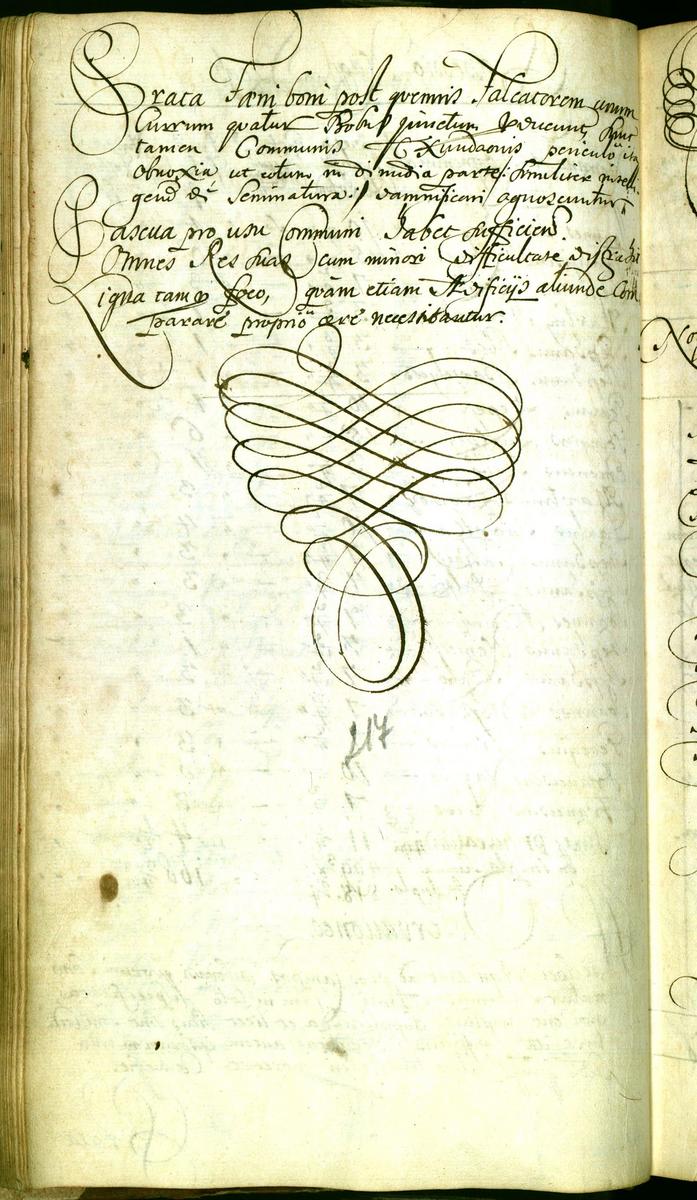 Prata Fæni boni post quemvis Falcatorem unum
Currum quatuor Bobus junctum producunt, sunt
tamen Communis Exundaonis periculo ita
obnoxia ut totum in dimidia parte /: similiter intelli-
gend de Seminatura :/ damnificari agnoscuntur
Pascua pro usu Communi habet sufficien
Omnes Res suas cum minori difficultate distrahit
Ligna tam pro foco, quam etiam Ædificijs aliunde Com
parare proprio ære necessitantur.
217
No